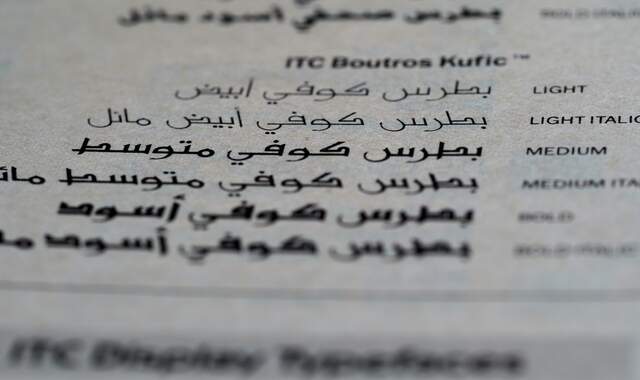 بطرس صحفي أسود مائل BOLD ITALIC
ITC Boutros Kufic™
بطرس كوفي أبيض LIGHT
بطرس كوفي أبيض مائل LIGHT ITALIC
بطرس كوفي متوسط MEDIUM
بطرس كوفي متوسط مائ MEDIUM ITA
بطرس كوفي أسود BOLD
بطرس كوفي أسود ما BOLD ITALIC
ITC Display Typefaces